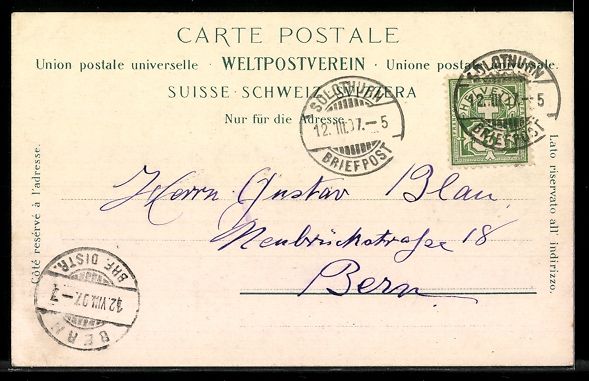 CARTE POSTALE
Union postale universelle. - WELTPOSTVEREIN - Unione postale universale.
SUISSE - SCHWEIZ - SVIZZERA
Nur für die Adresse.
Côté réservé à l'adresse.
Lato riservato all' indirizzo.
SOLOTHURN
12. III. 97. - 5
BRIEFPOST
SOLOTHURN
12. III. 97. - 5
BRIEFPOST
Herrn Gustav Blau
Neubrückstraße 18
Bern
BERN
12. VIII. 97. - 7
BRF. DISTR.